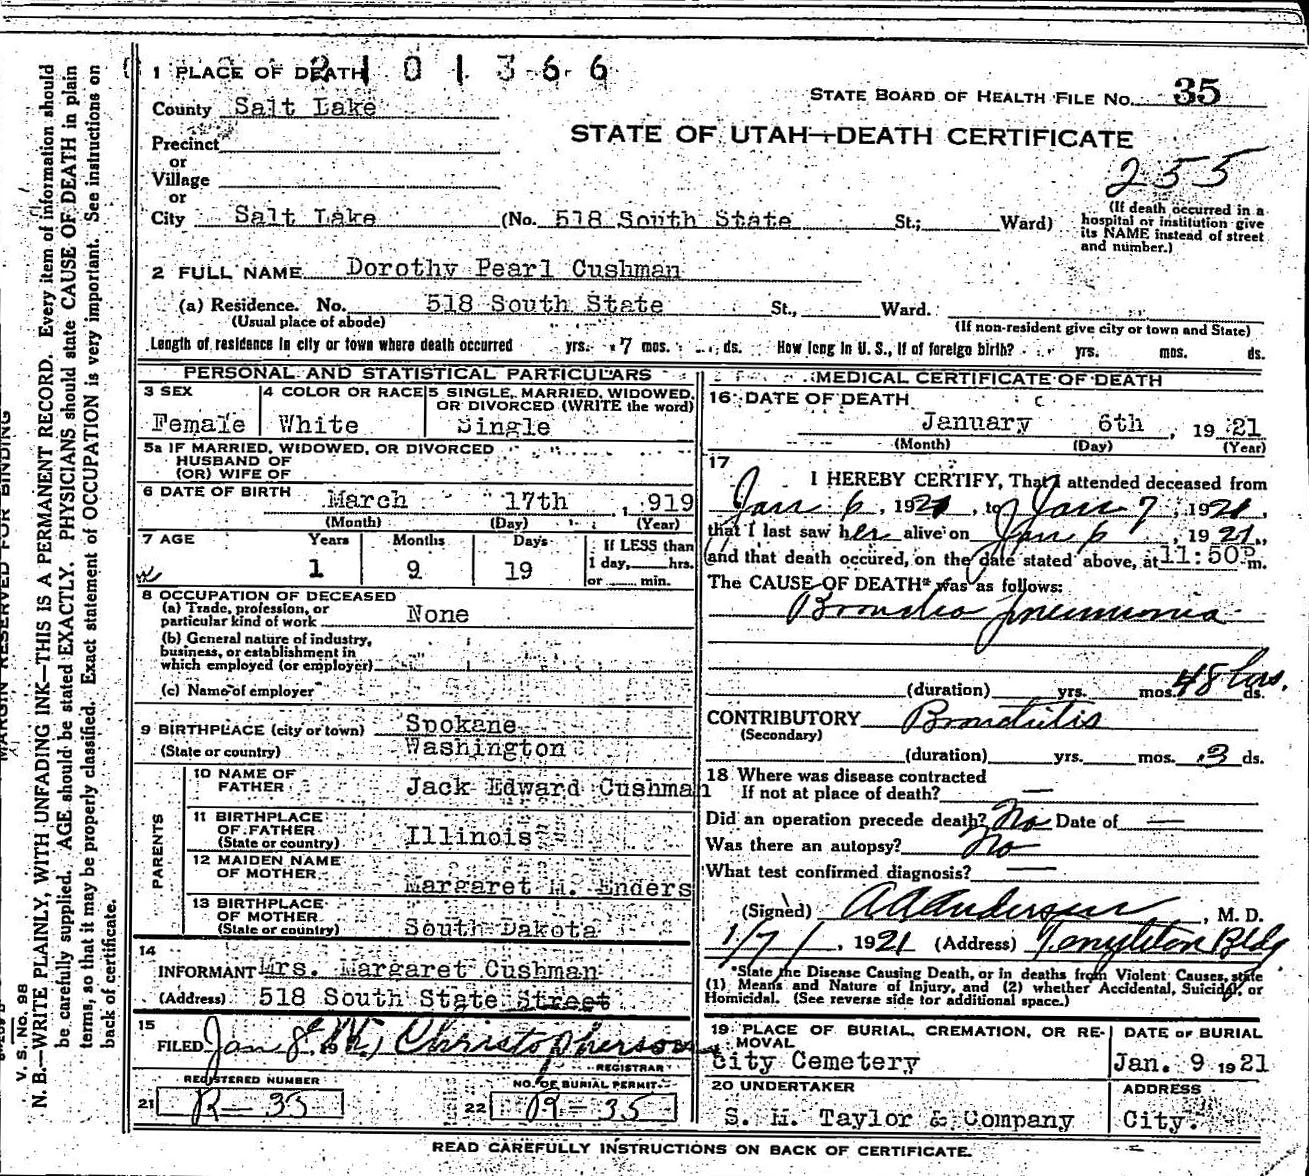 2101366
1 PLACE OF DEATH
STATE BOARD OF HEALTH FILE No. 35
County Salt Lake
STATE OF UTAH—DEATH CERTIFICATE
Precinct
or
Village
or
255
City Salt Lake (No. 518 South State St.; Ward)
(If death occurred in a
hospital or institution give
its NAME instead of street
and number.)
2 FULL NAME Dorothy Pearl Cushman
(a) Residence. No. 518 South State St., Ward.
(Usual place of abode)
(If non-resident give city or town and State)
Length of residence in city or town where death occurred yrs. 7 mos. ds. How long in U. S., if of foreign birth? yrs. mos. ds.
PERSONAL AND STATISTICAL PARTICULARS
3 SEX
Female
4 COLOR OR RACE
White
5 SINGLE, MARRIED, WIDOWED,
OR DIVORCED (WRITE the word)
Single
5a IF MARRIED, WIDOWED, OR DIVORCED
HUSBAND OF
(OR) WIFE OF
6 DATE OF BIRTH March 17th , 919
(Month) (Day) (Year)
7 AGE Years Months Days
1 9 19
If LESS than
1 day, hrs.
or min.
8 OCCUPATION OF DECEASED
(a) Trade, profession, or
particular kind of work None
(b) General nature of industry,
business, or establishment in
which employed (or employer)
(c) Name of employer
9 BIRTHPLACE (city or town) Spokane
(State or country) Washington
PARENTS
10 NAME OF
FATHER Jack Edward Cushman
11 BIRTHPLACE
OF FATHER
(State or country) Illinois
12 MAIDEN NAME
OF MOTHER Margaret M. Enders
13 BIRTHPLACE
OF MOTHER
(State or country) South Dakota
14
INFORMANT Mrs. Margaret Cushman
(Address) 518 South State Street
15
FILED Jan 8, 19 Christopherson
REGISTRAR
REGISTERED NUMBER
21 R-35
NO. OF BURIAL PERMIT
22 R-35
MEDICAL CERTIFICATE OF DEATH
16 DATE OF DEATH
January 6th , 19 21
(Month) (Day) (Year)
17
I HEREBY CERTIFY, That I attended deceased from
Jan 6, 1921, to Jan 7, 1921,
that I last saw her alive on Jan 6, 1921,
and that death occured, on the date stated above, at 11:50P.m.
The CAUSE OF DEATH* was as follows:
Broncho pneumonia
(duration) yrs. mos. 48 hrs. ds.
CONTRIBUTORY Bronchitis
(Secondary)
(duration) yrs. mos. 3 ds.
18 Where was disease contracted
If not at place of death? —
Did an operation precede death? No Date of —
Was there an autopsy? No
What test confirmed diagnosis? —
(Signed) A A Anderson, M. D.
1/7/, 1921 (Address) Templeton Bldg
*State the Disease Causing Death, or in deaths from Violent Causes, state
(1) Means and Nature of Injury, and (2) whether Accidental, Suicidal, or
Homicidal. (See reverse side for additional space.)
19 PLACE OF BURIAL, CREMATION, OR RE-
MOVAL
City Cemetery
DATE OF BURIAL
Jan. 9 19 21
20 UNDERTAKER
S. M. Taylor & Company
ADDRESS
City.
READ CAREFULLY INSTRUCTIONS ON BACK OF CERTIFICATE.
MARGIN RESERVED FOR BINDING
V. S. No. 98
N. B.—WRITE PLAINLY, WITH UNFADING INK—THIS IS A PERMANENT RECORD. Every item of information should
be carefully supplied. AGE should be stated EXACTLY. PHYSICIANS should state CAUSE OF DEATH in plain
terms, so that it may be properly classified. Exact statement of OCCUPATION is very important. See instructions on
back of certificate.